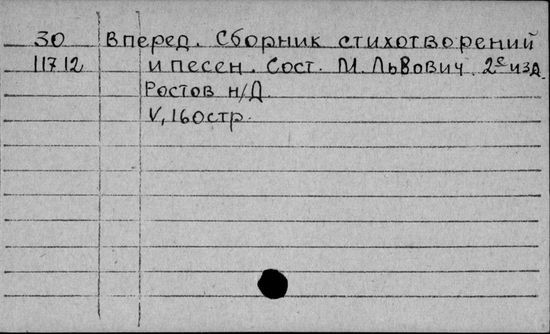 30 Вперед. Сборник стихотворений
11712 и песен. Сост. М. Львович. 2е изд.
Ростов н/Д.
V, 160 стр.